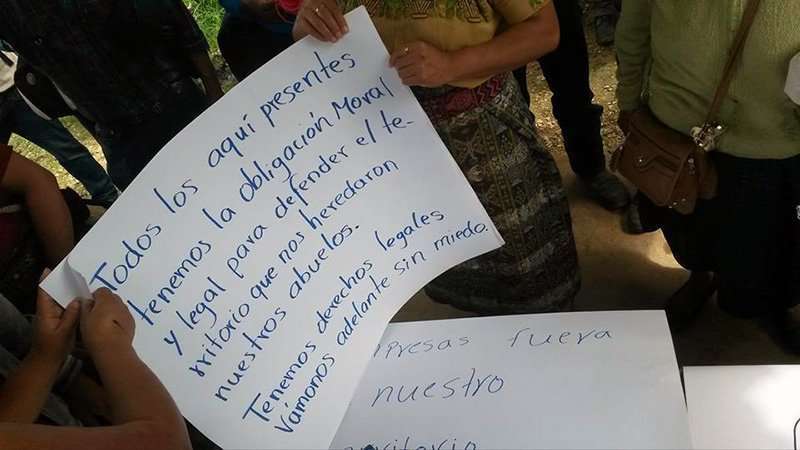 Todos los aquí presentes
tenemos la obligación Moral
y legal para defender el te-
rritorio que nos heredaron
nuestros abuelos.
Tenemos derechos legales
Vámonos adelante sin miedo.
fuera
nuestro